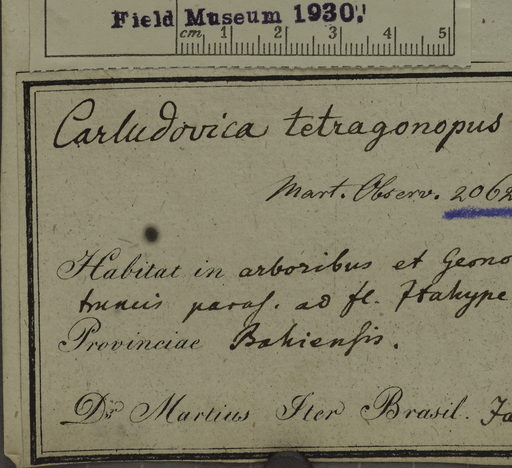 Field Museum 1930.
cm 1 2 3 4 5
Carludovica tetragonopus
Mart. Observ. 2062
Habitat in arboribus et Geono
truncis paras. ad fl. Itahype
Provinciae Bahiensis.
Dr Martius Iter Brasil. Ja